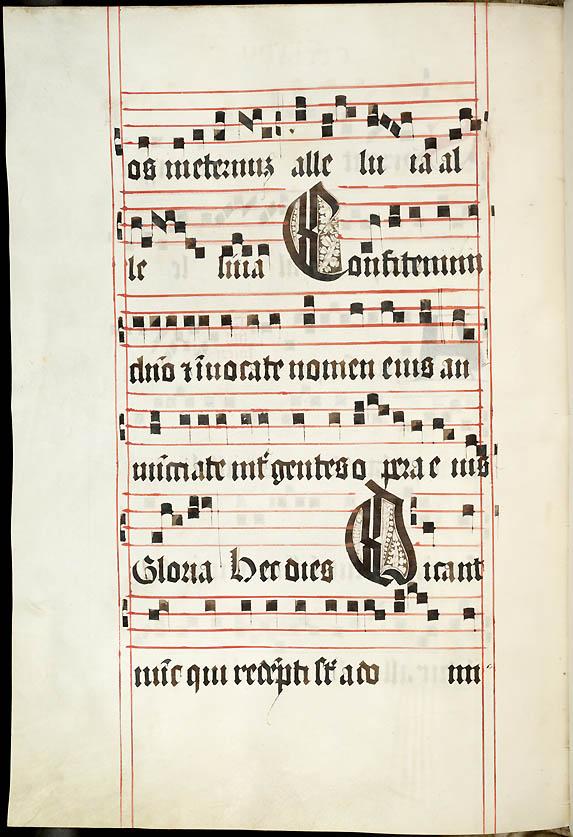 os meternuz alle lu ia al
le luia Confitemini
dn̄o ⁊ īuocate nomen eius an
nūciate int̄ gentes o pera e ius
Gloria Hec dies Dicant
nūc qui redēpti sūt a do mi